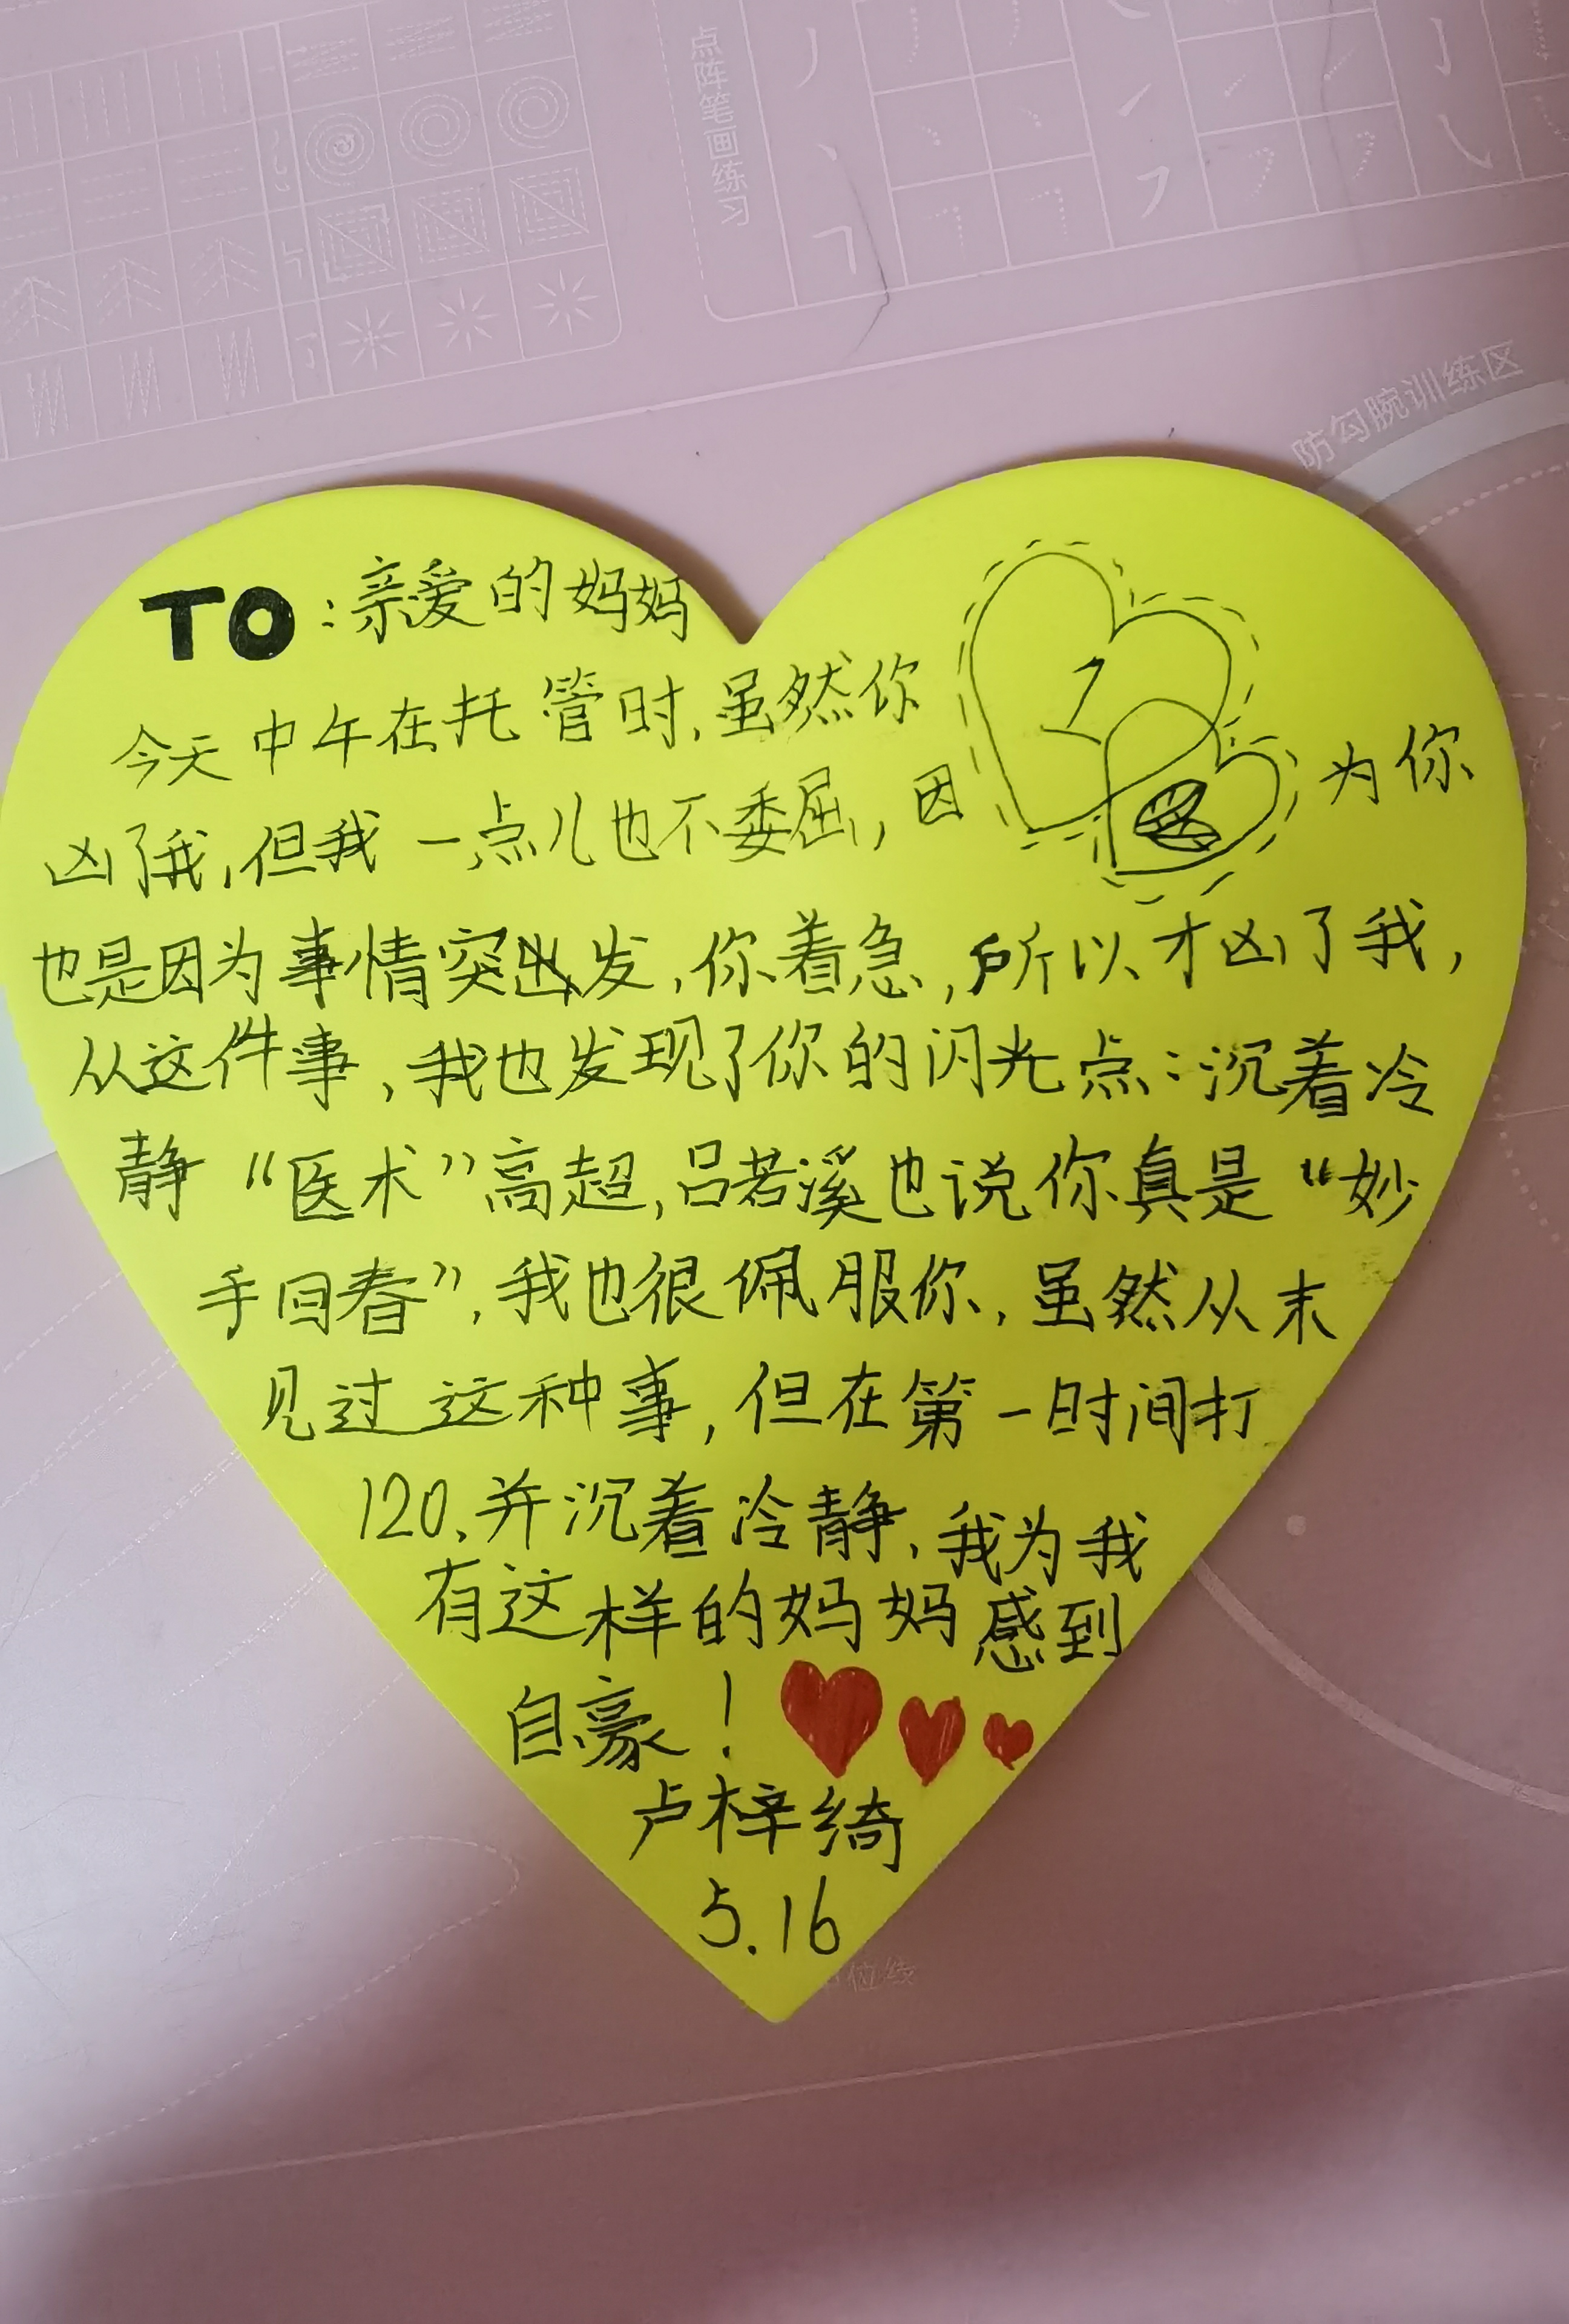 点阵笔画练习
防勾腕训练区
TO:亲爱的妈妈
今天中午在托管时,虽然你
凶了我,但我一点儿也不委屈,因为你
也是因为事情突出发,你着急,所以才凶了我,
从这件事,我也发现了你的闪光点:沉着冷
静“医术”高超,吕若溪也说你真是“妙
手回春”,我也很佩服你,虽然从末
见过这种事,但在第一时间打
120,并沉着冷静,我为我
有这样的妈妈感到
自豪!
卢梓绮
5.16